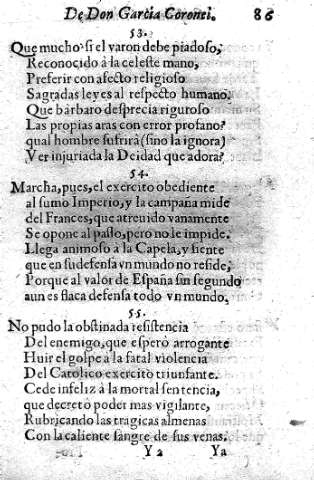 De Don Garcia Coronel. 86
53.
Que mucho si el varon debe piadoso,
Reconocido à la celeste mano,
Preferir con afecto religioso
Sagradas leyes al respecto humano?
Que bàrbaro desprecia riguroso
Las propias aras con error profano?
qual hombre sufrirà (sino la ignora)
Ver injuriada la Deidad que adora?
54.
Marcha, pues, el exercito obediente
al sumo Imperio, y la campaña mide
del Frances, que atreuido vanamente
Se opone al passo, pero no le impide.
Llega animoso à la Capela, y siente
que en su defensa vn mundo no reside,
Porque al valor de España sin segundo
aun es flaca defensa todo vn mundo.
55.
No pudo la obstinada resistencia
Del enemigo, que esperò arrogante
Huir el golpe à la fatal violencia
Del Catolico exercito triunfante.
Cede infeliz à la mortal sentencia,
que decretò poder mas vigilante,
Rubricando las tragicas almenas
Con la caliente sangre de sus venas.
Y 2 Ya